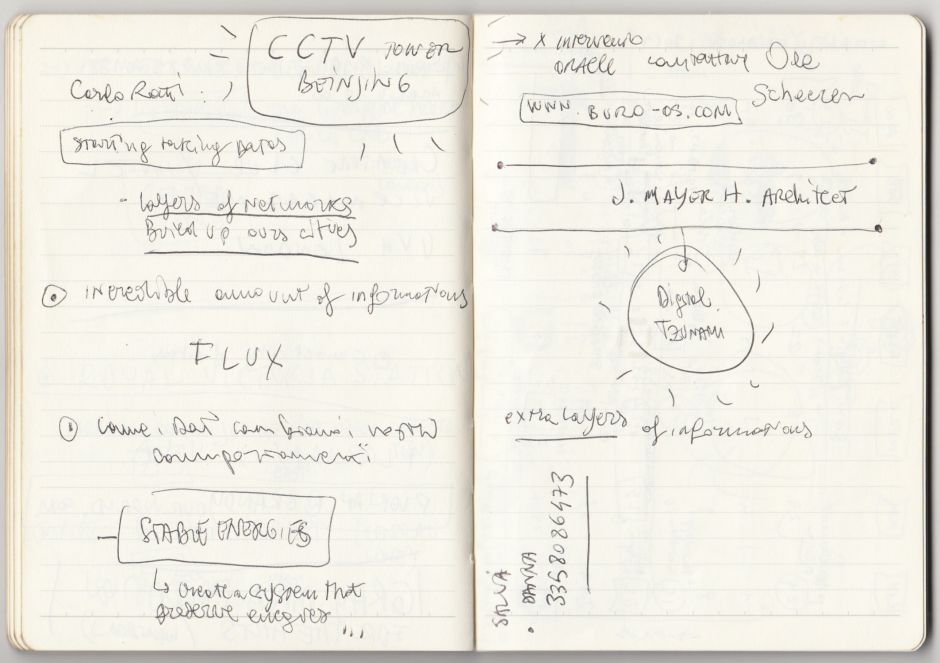 CCTV TOWER
BEINJING
Carlo Ratti :
starting taking datas
- layers of networks
Build up ours cities
incredible amount of informations
FLUX
come i Dati cambiano i nostri
comportamenti
- STABLE ENERGIES
↳ create a system that
preserve energies ...
→ X intervento
ORACLE contattare Ole
Scheeren
WWW.BURO-OS.COM
J. MAYER H. Architect
Digital
TZUNAMI
extra layers of informations
SALVA
DANNA
3358086473